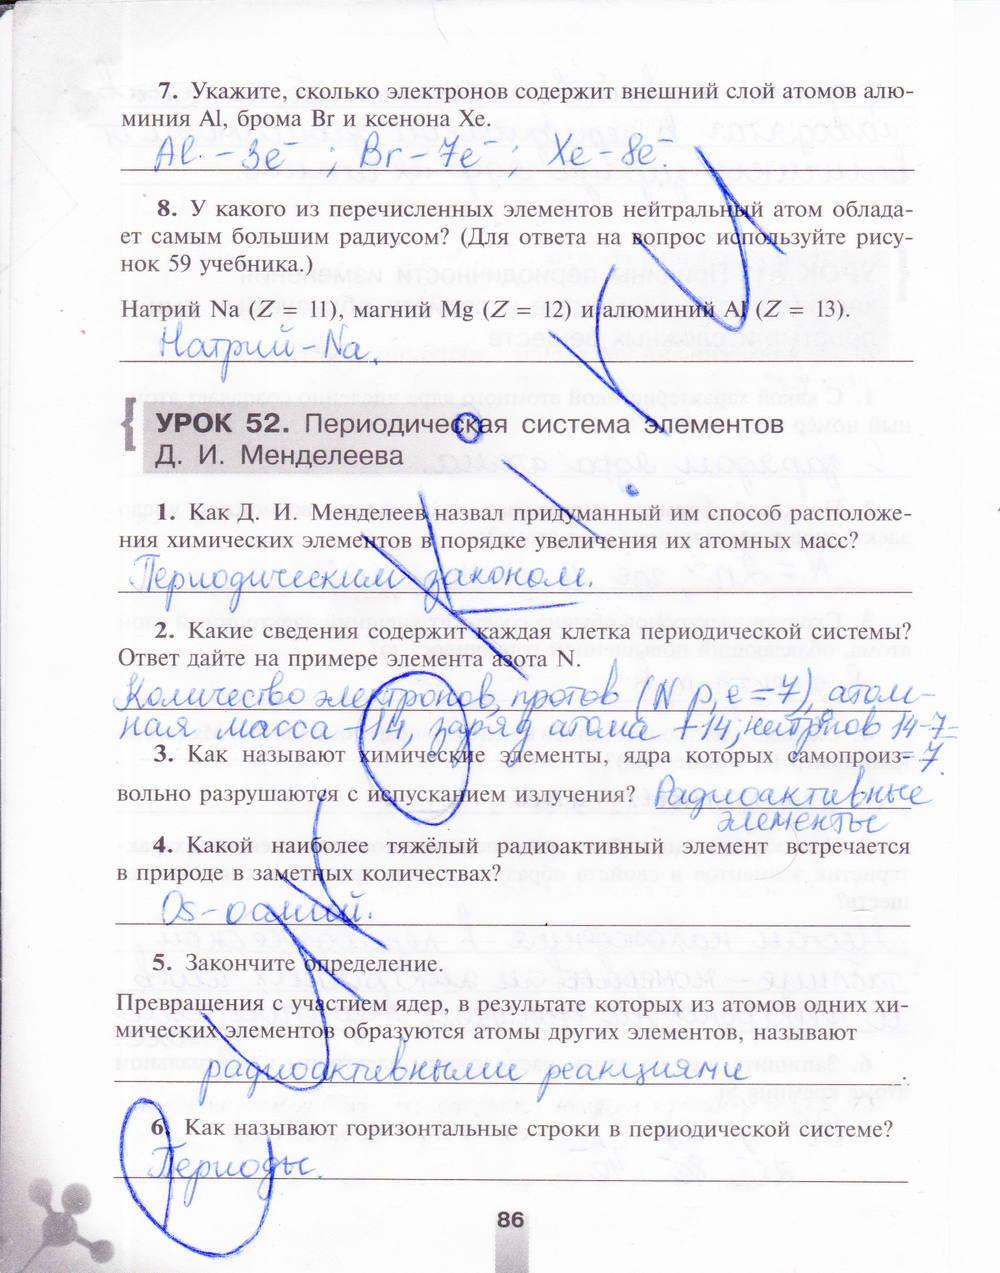 7. Укажите, сколько электронов содержит внешний слой атомов алю-
миния Al, брома Br и ксенона Xe.
Al - 3e⁻ ; Br - 7e⁻ ; Xe - 8e⁻.
8. У какого из перечисленных элементов нейтральный атом облада-
ет самым большим радиусом? (Для ответа на вопрос используйте рису-
нок 59 учебника.)
Натрий Na (Z = 11), магний Mg (Z = 12) и алюминий Al (Z = 13).
Натрий - Na.
УРОК 52. Периодическая система элементов
Д. И. Менделеева
1. Как Д. И. Менделеев назвал придуманный им способ расположе-
ния химических элементов в порядке увеличения их атомных масс?
Периодическим законом.
2. Какие сведения содержит каждая клетка периодической системы?
Ответ дайте на примере элемента азота N.
Количество электронов, протов (N p, e = 7), атом-
ная масса - 14, заряд атома +14, нейтронов 14-7=
3. Как называют химические элементы, ядра которых самопроиз- =7.
вольно разрушаются с испусканием излучения? Радиоактивные
элементы
4. Какой наиболее тяжёлый радиоактивный элемент встречается
в природе в заметных количествах?
Os - осмий.
5. Закончите определение.
Превращения с участием ядер, в результате которых из атомов одних хи-
мических элементов образуются атомы других элементов, называют
радиоактивными реакциями.
6. Как называют горизонтальные строки в периодической системе?
Периоды.
86